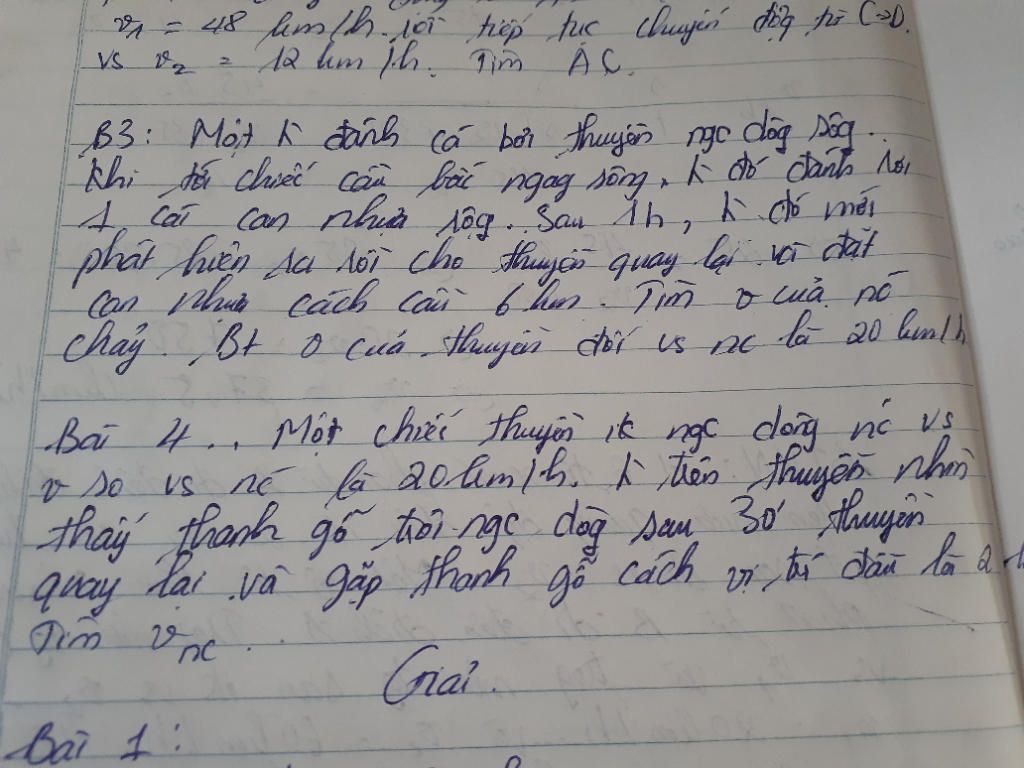 v₁ = 48 km/h. rồi tiếp tục chuyển động từ C→D.
vs v₂ = 12 km/h. Tìm AC.
B3: Một k đánh cá bơi thuyền ngc dòg sôg.
khi tới chiếc cầu bắc ngag sông, k đó đánh rơi
1 cái can nhựa rỗg. Sau 1h, k đó mới
phát hiện ra rồi cho thuyền quay lại và
can nhựa cách cầu 6 km. Tìm v của nó
chảy. Bt v của thuyền đối vs nc là 20 km/h
Bài 4.. Một chiếc thuyền ngc dòng nc vs
v so vs nc là 20 km/h. k trên thuyền nhìn
thấy thanh gỗ trôi ngc dòg sau 30' thuyền
quay lại và gặp thanh gỗ cách vị trí đầu là 2
Tìm v nc.
Giải.
Bài 1: